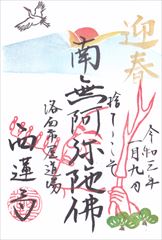 迎春
令和三年
一月九日
捨てゝこそ
南無阿弥陀佛
洛西市屋道場
西蓮寺